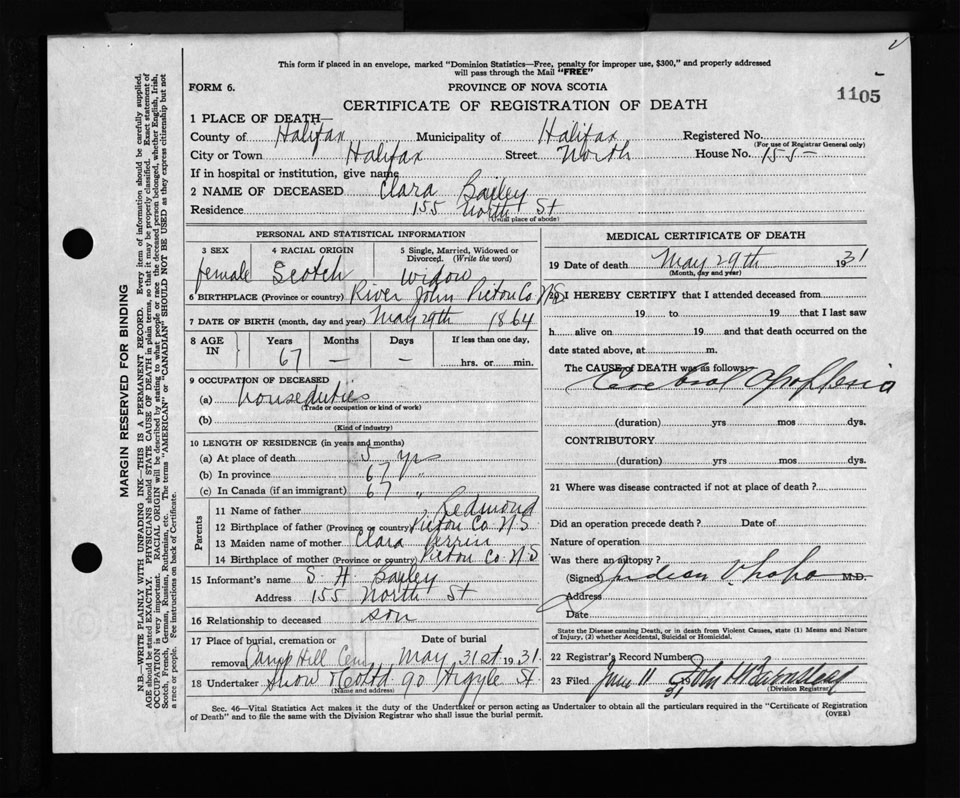 This form if placed in an envelope, marked "Dominion Statistics—Free, penalty for improper use, $300," and properly addressed
will pass through the Mail "FREE"
FORM 6.
PROVINCE OF NOVA SCOTIA
1105
CERTIFICATE OF REGISTRATION OF DEATH
1 PLACE OF DEATH—
County of Halifax Municipality of Halifax Registered No.
(For use of Registrar General only)
City or Town Halifax Street North House No. 155
If in hospital or institution, give name
2 NAME OF DECEASED Clara Bailey
Residence 155 North St
(Usual place of abode)
PERSONAL AND STATISTICAL INFORMATION
3 SEX 4 RACIAL ORIGIN 5 Single, Married, Widowed or Divorced. (Write the word)
female Scotch Widow
6 BIRTHPLACE (Province or country) River John Pictou Co. N.S
7 DATE OF BIRTH (month, day and year) May 29th 1864
8 AGE IN Years Months Days If less than one day,
67 — — hrs. or min.
9 OCCUPATION OF DECEASED
(a) house duties
(Trade or occupation or kind of work)
(b)
(Kind of industry)
10 LENGTH OF RESIDENCE (in years and months)
(a) At place of death 5 yrs
(b) In province 67 "
(c) In Canada (if an immigrant) 67 "
Parents
11 Name of father Redmond
12 Birthplace of father (Province or country) Pictou Co. N.S
13 Maiden name of mother Clara Perrin
14 Birthplace of mother (Province or country) Pictou Co N.S
15 Informant's name S. H. Bailey
Address 155 North St
16 Relationship to deceased son
17 Place of burial, cremation or removal Camp Hill Cem Date of burial May 31st 1931
18 Undertaker Snow & Co Ltd 90 Argyle St
(Name and address)
MEDICAL CERTIFICATE OF DEATH
19 Date of death May 29th 1931
(Month, day and year)
20 I HEREBY CERTIFY that I attended deceased from
19 to 19 that I last saw
h alive on 19 and that death occurred on the
date stated above, at m.
The CAUSE of DEATH was as follows:
Cerebral Apoplexia
(duration) yrs mos dys.
CONTRIBUTORY
(duration) yrs mos dys.
21 Where was disease contracted if not at place of death?
Did an operation precede death? Date of
Nature of operation
Was there an autopsy?
(Signed) M.D.
Address
Date
State the Disease causing Death, or in death from Violent Causes, state (1) Means and Nature
of Injury, (2) whether Accidental, Suicidal or Homicidal.
22 Registrar's Record Number
23 Filed June 11 31 John H
(Division Registrar)
Sec. 46—Vital Statistics Act makes it the duty of the Undertaker or person acting as Undertaker to obtain all the particulars required in the "Certificate of Registration
of Death" and to file the same with the Division Registrar who shall issue the burial permit.
(OVER)
MARGIN RESERVED FOR BINDING
N.B.—WRITE PLAINLY WITH UNFADING INK—THIS IS A PERMANENT RECORD. Every item of information should be carefully supplied.
AGE should be stated EXACTLY. PHYSICIANS should STATE CAUSE OF DEATH in plain terms, so that it may be properly classified. Exact statement of
OCCUPATION is very important. RACIAL ORIGIN will be described by stating to what people or race the deceased person belonged, whether English, Irish,
Scotch, French, German, Russian, Ruthenian, etc. The terms "AMERICAN" or "CANADIAN" SHOULD NOT BE USED as they express citizenship but not
a race or people. Fee instructions on back of Certificate.